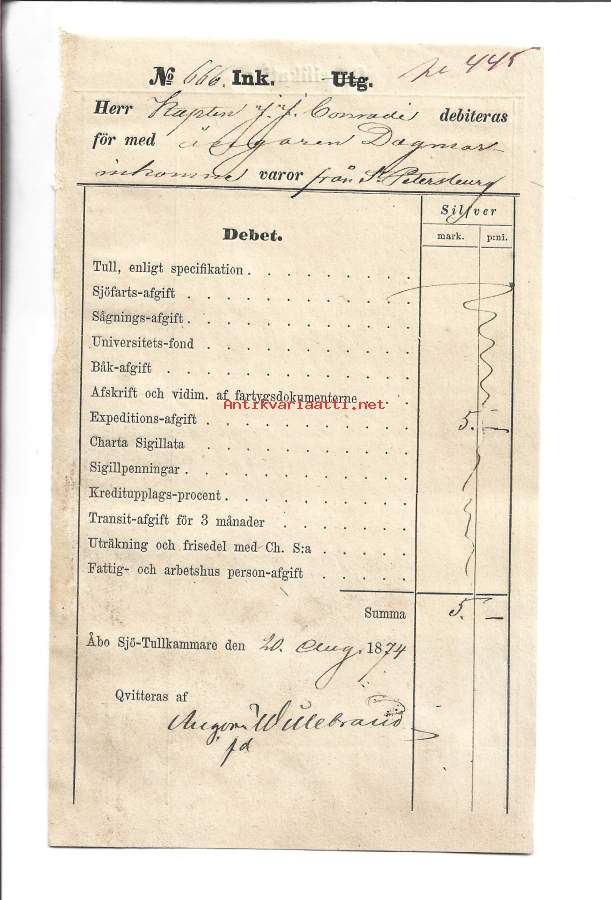 № 666. Ink. Utg. 445
Herr Kapten J. J. Conradi debiteras
för med ångaren Dagmar
inkomne varor från St Petersburg
Silfver
Debet. mark. p:ni.
Tull, enligt specifikation
Sjöfarts-afgift
Sågnings-afgift
Universitets-fond
Båk-afgift
Afskrift och vidim. af fartygsdokumenterne
Antikvariaatti.net
Expeditions-afgift 5. –
Charta Sigillata
Sigillpenningar
Kreditupplags-procent
Transit-afgift för 3 månader
Uträkning och frisedel med Ch. S:a
Fattig- och arbetshus person-afgift
Summa 5. –
Åbo Sjö-Tullkammare den 20. Aug. 1874
Qvitteras af
Willebrand